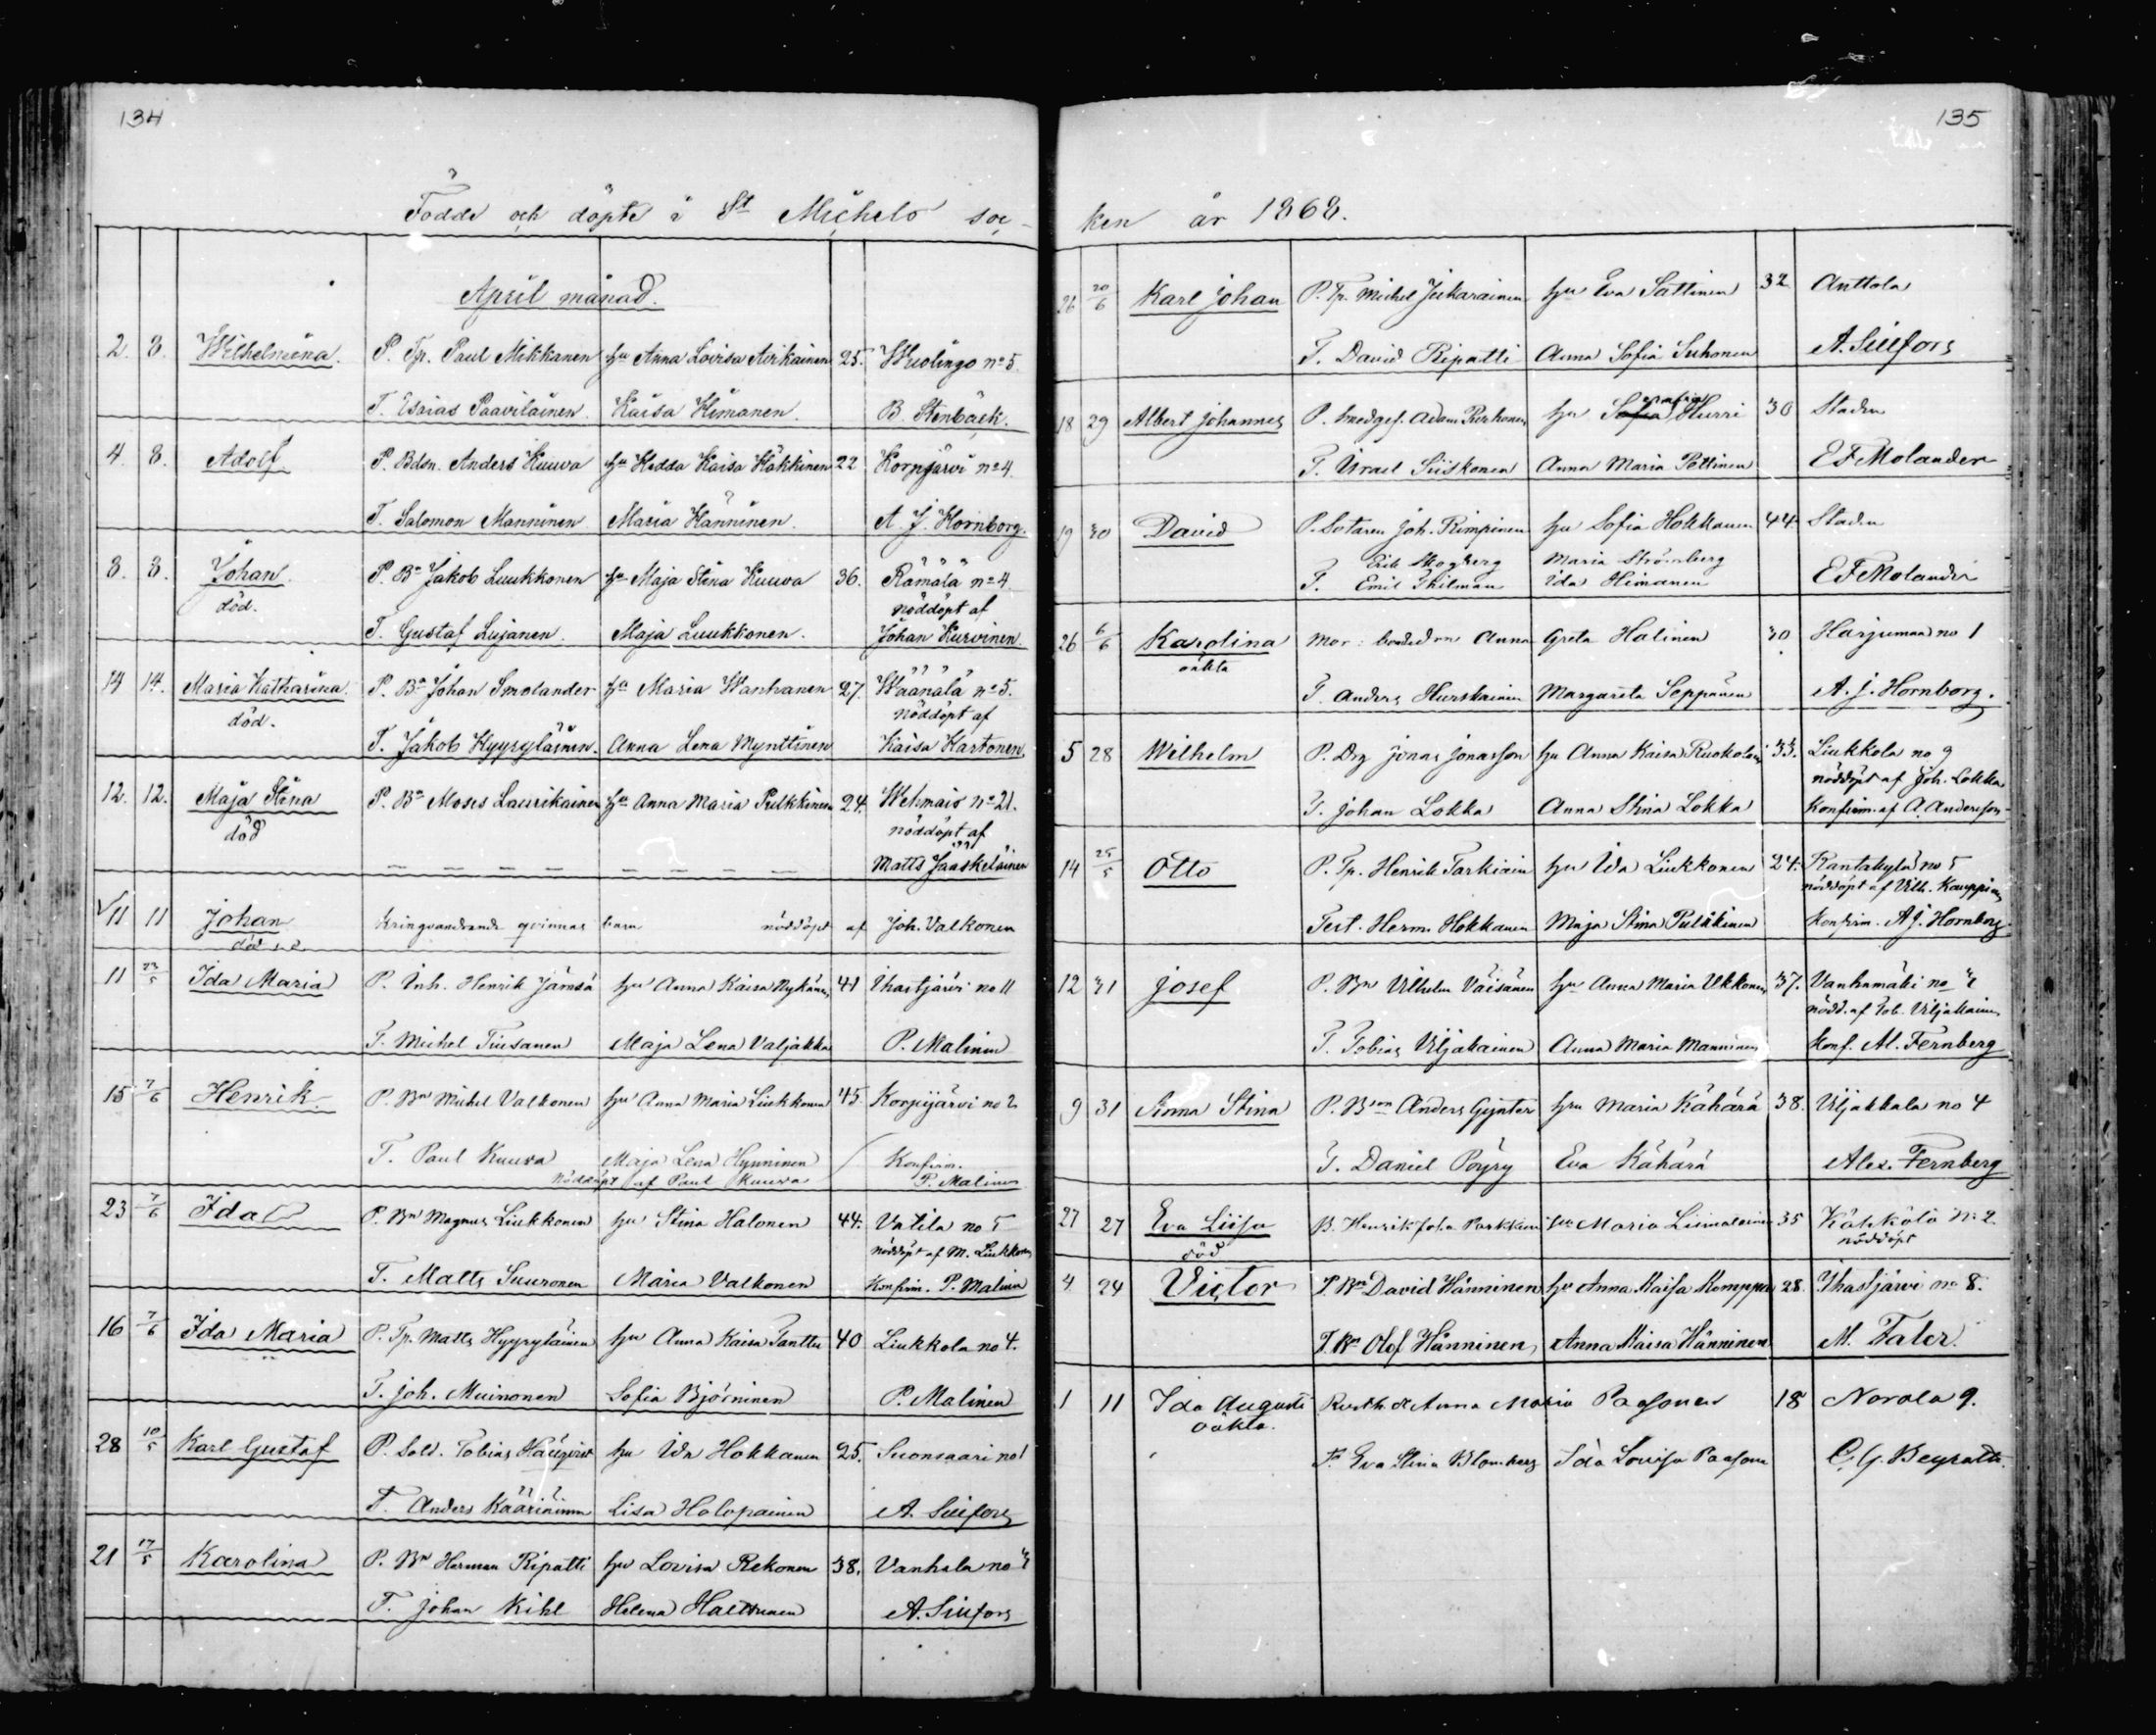 134
Födde och döpte i St Michels soc-
April månad.
2. 8. Wilhelmina. P. Tp. Paul Mikkanen hu Anna Lovisa Avikainen 25. Wuolingo no 5.
T. Esaias Paavilainen. Kaisa Himanen. B. Stenbäck.
4. 8. Adolf P. Bdsn. Anders Kuuva hu Hedda Kaisa Häkkinen 22 Korpijärvi no 4.
T. Salomon Manninen Maria Hänninen. A. J. Hornborg.
8. 8. Johan P. Bn Jakob Luukkonen hu Maja Stina Kuuva 36. Rämälä no 4.
död. nöddöpt af
T. Gustaf Lujanen. Maja Luukkonen. Johan Kurvinen.
14 14. Maria Katharina. P. Bn Johan Smolander hu Maria Wanhanen 27. Wäänälä no 5.
död. nöddöpt af
T. Jakob Hyyryläinen. Anna Lena Mynttinen Kaisa Kartonen
12. 12. Maja Stina P. Bn Moses Laurikainen hu Anna Maria Pulkkinen 24. Wehmais no 21.
död nöddöpt af
Matts Jääskeläinen
11 11 Johan Kringvandrande qvinnas barn nöddöpt af Joh. Valkonen
död
11 23/5 Ida Maria P. Inh. Henrik Jämsä hu Anna Kaisa Nykänen 41 Ihastjärvi no 11
T. Michel Tiusanen Maja Lena Valjakka P. Malinen
15 7/6 Henrik P. Bn Michel Valkonen hu Anna Maria Liukkonen 45. Korpijärvi no 2
T. Paul Kuuva Maja Lena Hynninen Konfirm.
Nöddöpt af Paul Kuuva P. Malinen
23 7/6 Ida P. Bn Magnus Liukkonen hu Stina Halonen 44. Vatila no 5
nöddöpt af M. Liukkonen
T. Matts Suuronen Maria Valkonen Konfirm. P. Malinen
16 7/6 Ida Maria P. Tp. Matts Hyyryläinen hu Anna Kaisa Tanttu 40 Liukkola no 4.
T. Joh. Muinonen Sofia Björninen P. Malinen
28 10/5 Karl Gustaf P. Sold. Tobias hu Ida Hokkanen 25. Suonsaari no 1
T. Anders Kääriäinen Lisa Holopainen A. Siufors
21 17/5 Karolina P. Bn Herman Ripatti hu Lovisa Rekonen 38. Vanhala no
T. Johan Kihl Helena Halttunen A. Siufors
135
ken år 1868.
26 20/6 Karl Johan P. Tp. Michel Jukarainen hu Eva Sattinen 32 Anttola
T. David Ripatti Anna Sofia Suhonen A. Siufors
18 29 Albert Johannes P. Smedges. Adam Purhonen hu Sofia Hurri 30 Staden
T. Israel Siiskonen Anna Maria Pöttinen E F Molander
19 30 David P. Sotaren Joh. Rimpinen hu Sofia Hokkanen 44 Staden
Erik Skogberg Maria Strömberg
T. Emil Thilman Ida Himanen E F Molander
26 6/6 Karolina Mor: Anna Greta Halinen 30 Harjumaa no 1
oäkta
T. Anders Hurskainen Margareta Seppänen A. J. Hornborg.
5 28 Wilhelm P. Drg Jonas Jonasson hu Anna Kaisa Ruokolain 33. Liukkola no 9
nöddöpt af Joh. Lokka
T. Johan Lokka Anna Stina Lokka Konfirm. af A. Andersson
14 25/5 Otto P. Tp. Henrik Tarkiain hu Ida Liukkonen 24. Rantakylä no 5
nöddöpt af Vilh. Kauppinen
Test. Herm. Hokkanen Maja Stina Pulkkinen Konfirm. A J. Hornborg.
12 31 Josef P. Bn Vilhelm Väisänen hu Anna Maria Ukkonen 37. Vanhamäki no
nödd. af Tob. Viljakainen
T. Tobias Viljakainen Anna Maria Manninen Konf. Al. Fernberg
9 31 Anna Stina P. Bson Anders Gynter hu Maria Kähärä 38. Viljakkala no 4
T. Daniel Pöyry Eva Kähärä Alex. Fernberg
27 27 Eva Liisa B. Henrik Joha Parkkinen hu Maria Liimatainen 35 Kähkölä no 2.
död nöddöpt
4 24 Victor P. Bn David Hänninen hu Anna Kaisa Komppa 28. Ihastjärvi no 8.
T. Bn Olof Hänninen Anna Kaisa Hänninen M. Faler.
1 11 Ida Augusti Anna Maria Paasonen 18 Norola 9.
oäkta.
T. Eva Stina Blomberg Ida Lovisa Paasonen